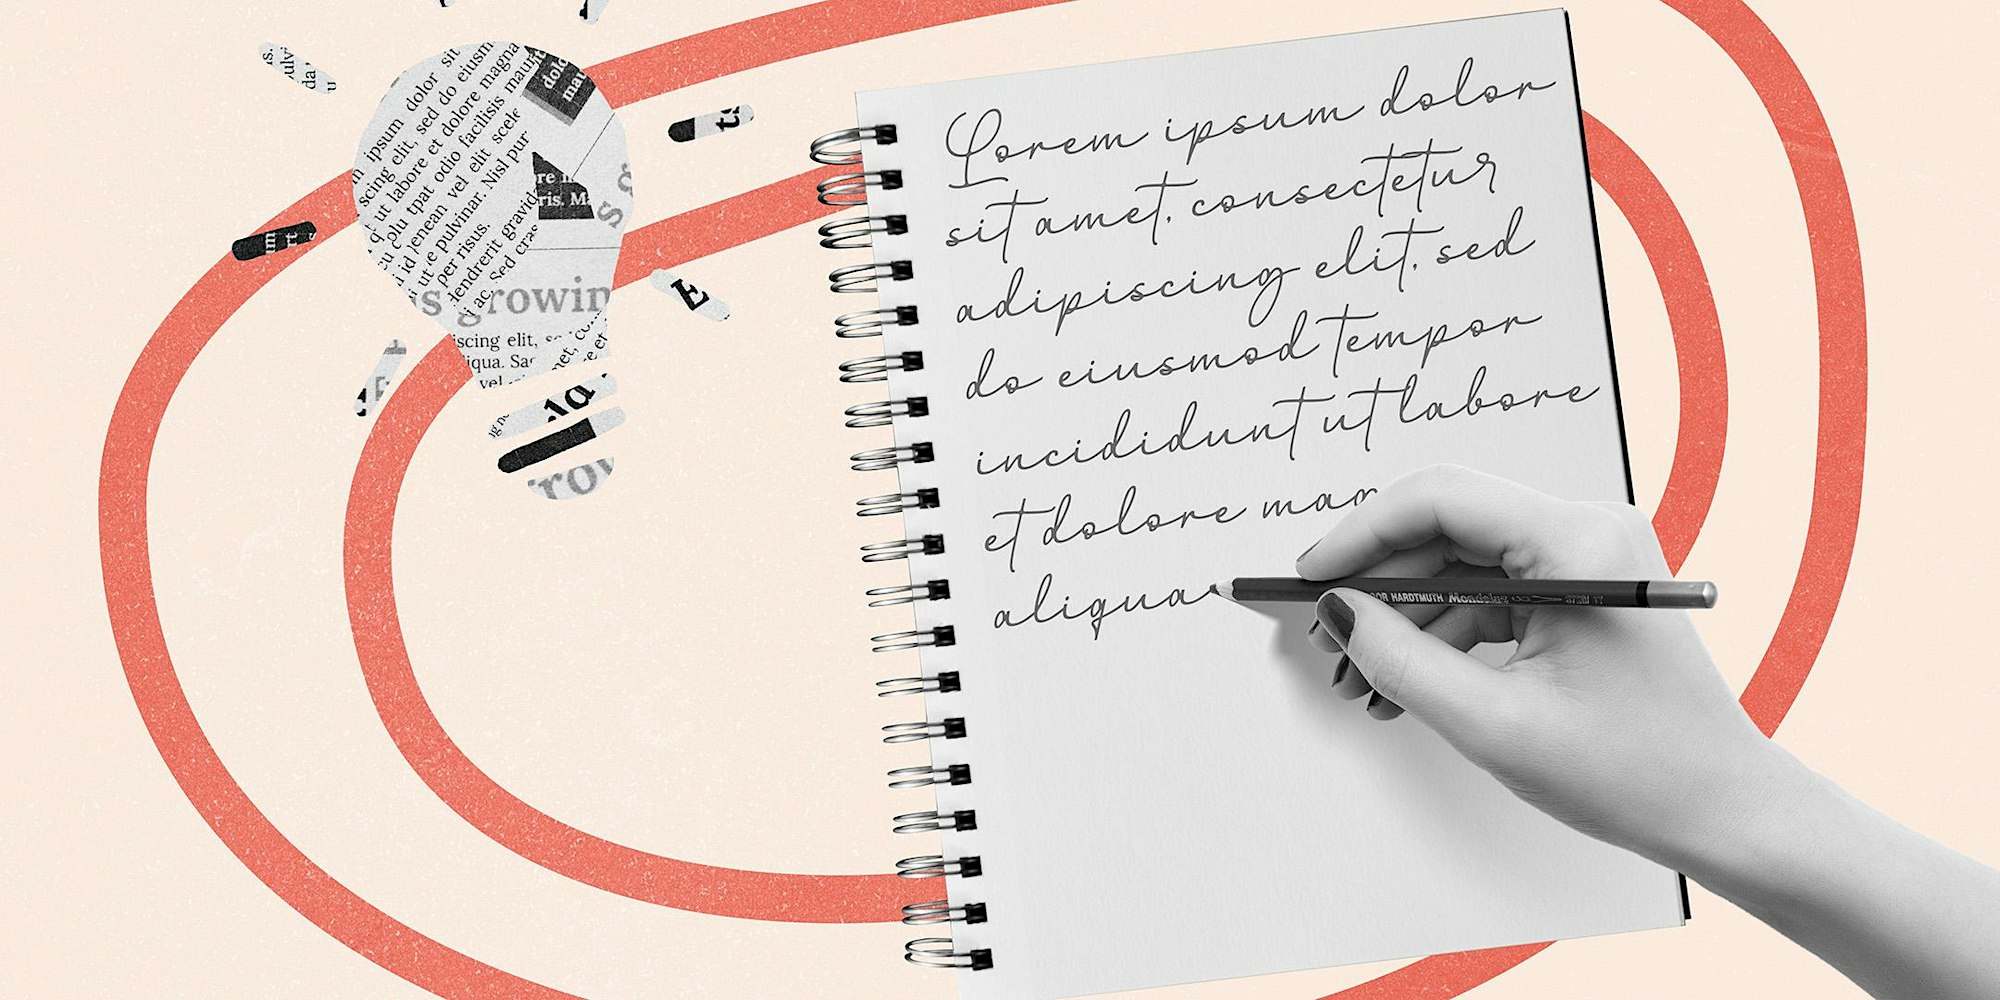 Lorem ipsum dolor
sit amet, consectetur
adipiscing elit, sed
do eiusmod tempor
incididunt ut labore
et dolore
aliqua
HARDTMUTH
ipsum dolor sit
scing elit, sed do eiusm
ut labore et dolore magna
tpat odio facilisis mauri
enean vel elit scele
pulvinar. Nisl pur
per risus.
endrerit gravid
ac. Sed cras
dolo
mau
ris. Ma
s growin
iscing elit,
iqua.
vel
E